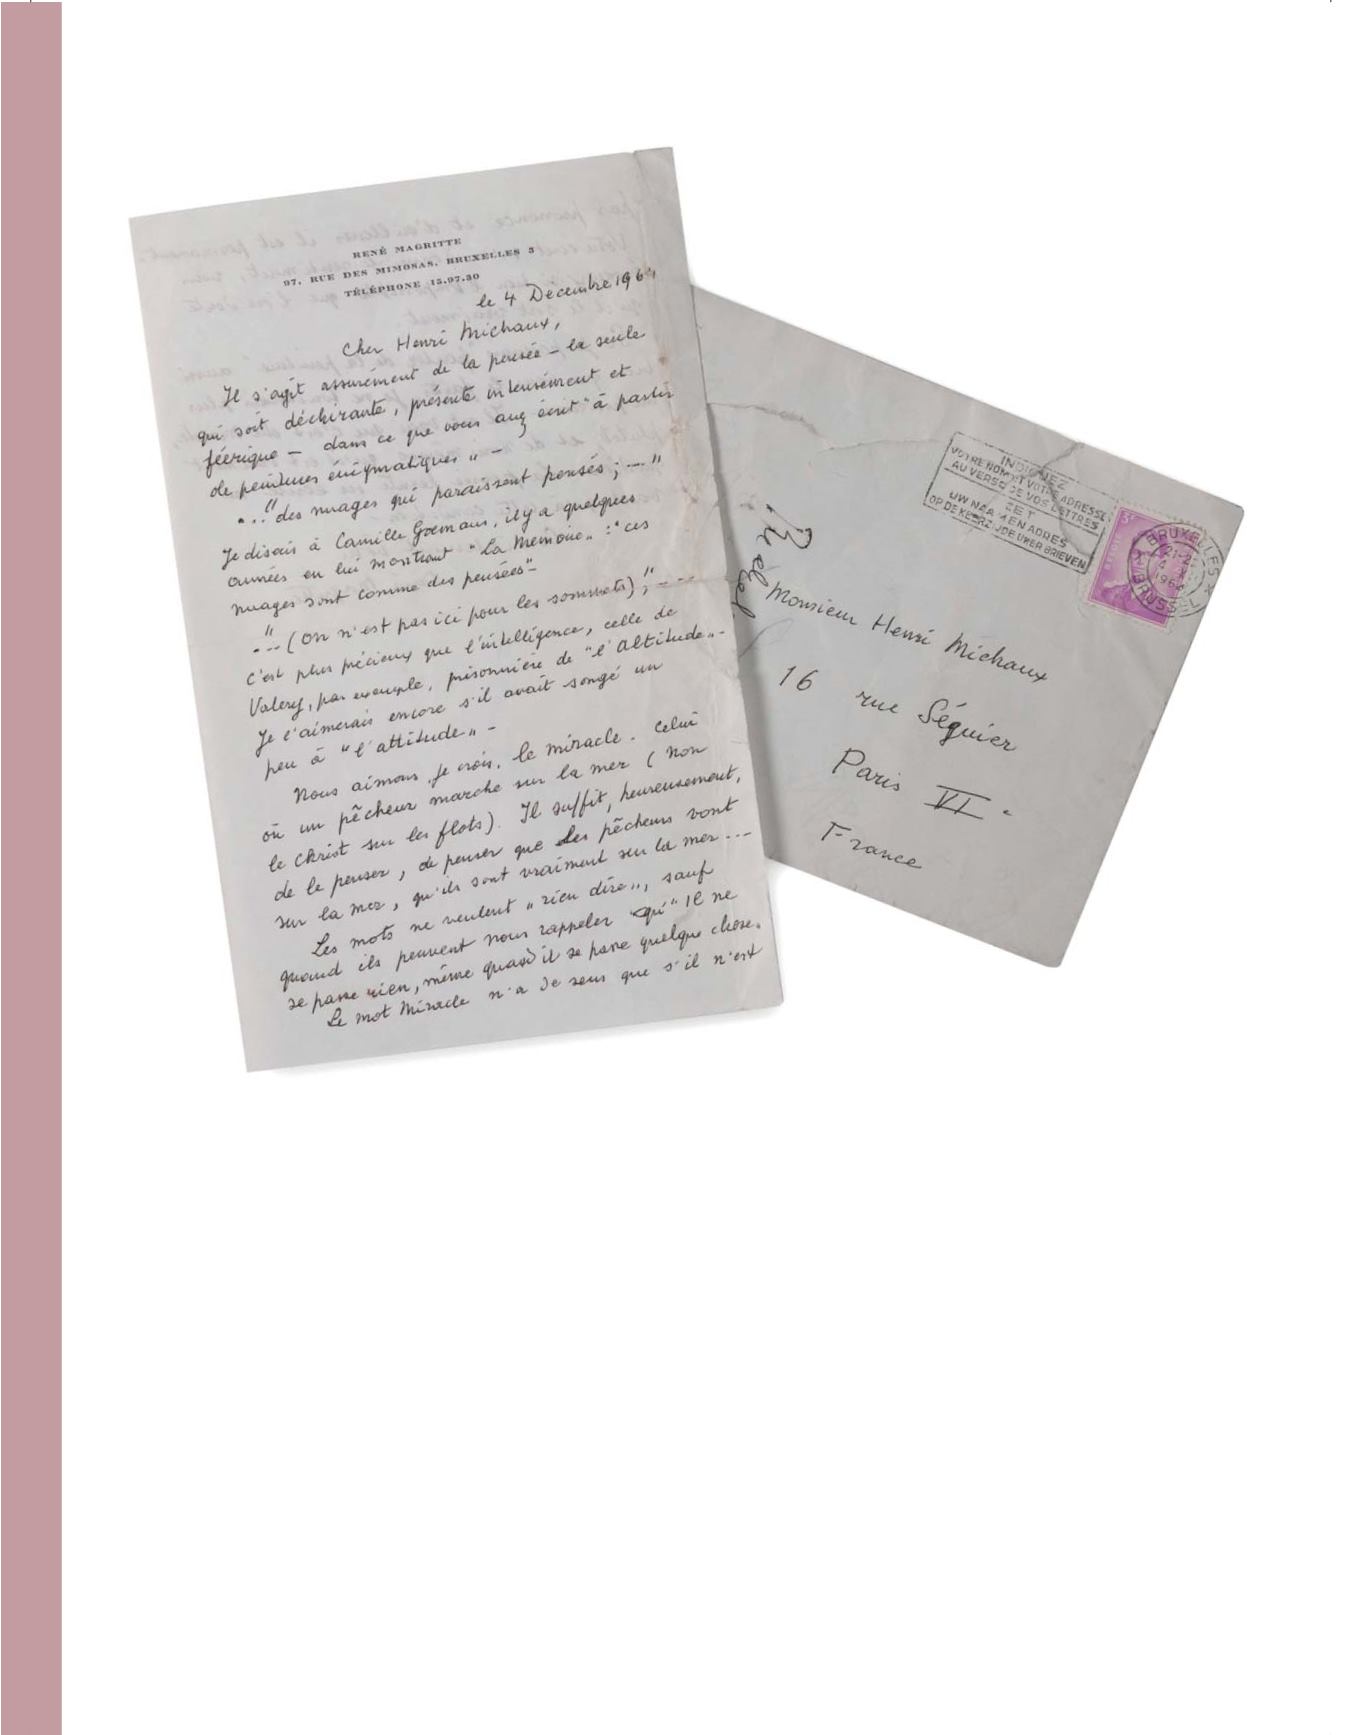 RENÉ MAGRITTE
97, RUE DES MIMOSAS, BRUXELLES 3
TÉLÉPHONE 15.97.30
le 4 Décembre 1964
Cher Henri Michaux,
Il s'agit assurément de la pensée — la seule
qui soit déchirante, présente intensément et
féerique — dans ce que vous avez écrit "à partir
de peintures énigmatiques" —
"... des nuages qui paraissent pensés; —"
Je disais à Camille Goemans, il y a quelques
années en lui montrant "La Mémoire" : "ces
nuages sont comme des pensées" —
"... (On n'est pas ici pour les sommets);" — --
c'est plus précieux que l'intelligence, celle de
Valery, par exemple, prisonnière de "l'altitude" —
Je l'aimerais encore s'il avait songé un
peu à "l'attitude" —
Nous aimons, je crois, le miracle. Celui
où un pêcheur marche sur la mer (non
le Christ sur les flots). Il suffit, heureusement,
de le penser, de penser que des pêcheurs vont
sur la mer, qu'ils sont vraiment sur la mer ...
Les mots ne veulent "rien dire", sauf
quand ils peuvent nous rappeler "qu'" Il ne
se passe rien, même quand il se passe quelque chose.
Le mot Miracle n'a de sens que s'il n'est
INDIQUEZ
VOTRE NOM ET VOTRE ADRESSE
AU VERSO DE VOS LETTRES
ZET
UW NAAM EN ADRES
OP DE KEERZIJDE UWER BRIEVEN
3F
BELGIE
BRUXELLES X
21-2
4 - X
1964
BRUSSEL
Monsieur Henri Michaux
16 rue Séguier
Paris VI
France